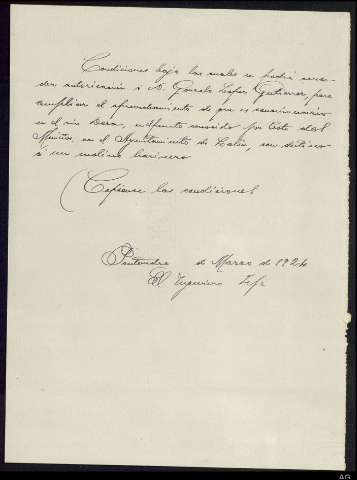 Condiciones bajo las cuales se podria conce-
der autorización á D. Gonzalo López Gutierrez, para
ampliar el aprovechamiento de que es concesionario
en el rio Deza, en el punto conocido por Coto
Muiños, en el Ayuntamiento de Lalín, con destino
á un molino harinero
(Cópiense las condiciones)
Pontevedra de Marzo de 1924
El Ingeniero Jefe
AG